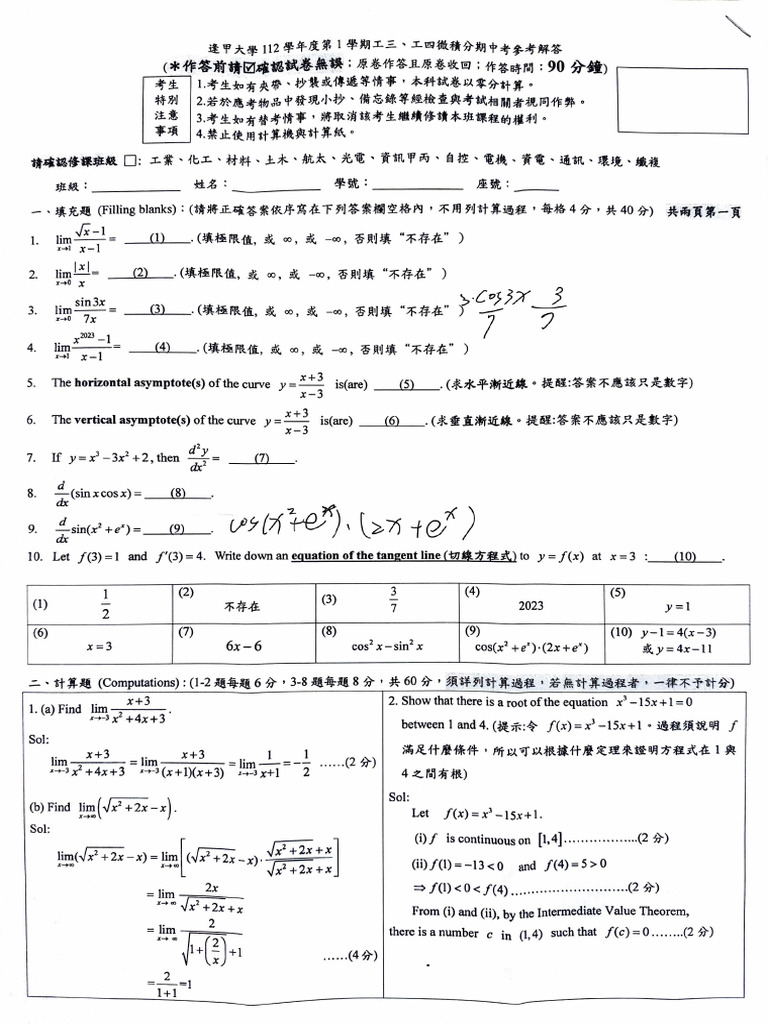 逢甲大學 112 學年度第 1 學期工三、工四微積分期中考參考解答
(＊作答前請☑確認試卷無誤；原卷作答且原卷收回；作答時間：90 分鐘)
考生特別注意事項
1.考生如有夾帶、抄襲或傳遞等情事，本科試卷以零分計算。
2.若於應考物品中發現小抄、備忘錄等經檢查與考試相關者視同作弊。
3.考生如有替考情事，將取消該考生繼續修讀本班課程的權利。
4.禁止使用計算機與計算紙。
請確認修課班級 □：工業、化工、材料、土木、航太、光電、資訊甲丙、自控、電機、資電、通訊、環境、纖複
班級：__________ 姓名：__________ 學號：__________ 座號：_____
一、填充題 (Filling blanks)：(請將正確答案依序寫在下列答案欄空格內，不用列計算過程，每格 4 分，共 40 分) 共兩頁第一頁
1. lim_{x→1} (√x −1)/(x−1) = (1) . (填極限值, 或 ∞, 或 −∞, 否則填 “不存在” )
2. lim_{x→0} |x|/x = (2) . (填極限值, 或 ∞, 或 −∞, 否則填 “不存在” )
3. lim_{x→0} sin 3x/7x = (3) . (填極限值, 或 ∞, 或 −∞, 否則填 “不存在” ) 3·cos3x/7 3/7
4. lim_{x→1} (x^2023 −1)/(x−1) = (4) . (填極限值, 或 ∞, 或 −∞, 否則填 “不存在” )
5. The horizontal asymptote(s) of the curve y = (x+3)/(x−3) is(are) (5) . (求水平漸近線。提醒:答案不應該只是數字)
6. The vertical asymptote(s) of the curve y = (x+3)/(x−3) is(are) (6) . (求垂直漸近線。提醒:答案不應該只是數字)
7. If y = x³ −3x² + 2 , then d²y/dx² = (7) .
8. d/dx (sin x cos x) = (8) .
9. d/dx sin(x² + eˣ) = (9) . cos(x²+eˣ)·(2x+eˣ)
10. Let f(3) = 1 and f′(3) = 4. Write down an equation of the tangent line (切線方程式) to y = f(x) at x = 3 : (10) .
(1) 1/2 (2) 不存在 (3) 3/7 (4) 2023 (5) y = 1
(6) x = 3 (7) 6x − 6 (8) cos² x − sin² x (9) cos(x² + eˣ)·(2x + eˣ) (10) y −1 = 4(x −3)
或 y = 4x −11
二、計算題 (Computations)：(1-2 題每題 6 分，3-8 題每題 8 分，共 60 分，須詳列計算過程，若無計算過程者，一律不予計分)
1. (a) Find lim_{x→−3} (x+3)/(x² + 4x + 3) .
Sol:
lim_{x→−3} (x+3)/(x² + 4x + 3) = lim_{x→−3} (x+3)/((x+1)(x+3)) = lim_{x→−3} 1/(x+1) = −1/2 ……(2 分)
(b) Find lim_{x→∞} (√(x² + 2x) − x) .
Sol:
lim_{x→∞} (√(x² + 2x) − x) = lim_{x→∞} [(√(x² + 2x) − x)· (√(x² + 2x) + x)/(√(x² + 2x) + x)]
= lim_{x→∞} 2x/(√(x² + 2x) + x)
= lim_{x→∞} 2/(√(1+(2/x)) +1) ……(4 分)
= 2/(1+1) =1
2. Show that there is a root of the equation x³ −15x +1 = 0
between 1 and 4. (提示:令 f(x) = x³ −15x +1。過程須說明 f
滿足什麼條件，所以可以根據什麼定理來證明方程式在 1 與
4 之間有根)
Sol:
Let f(x) = x³ −15x +1.
(i) f is continuous on [1,4]………………(2 分)
(ii) f(1) = −13 < 0 and f(4) = 5 > 0
⇒ f(1) < 0 < f(4)…………………………(2 分)
From (i) and (ii), by the Intermediate Value Theorem,
there is a number c in (1,4) such that f(c) = 0 ……..(2 分)